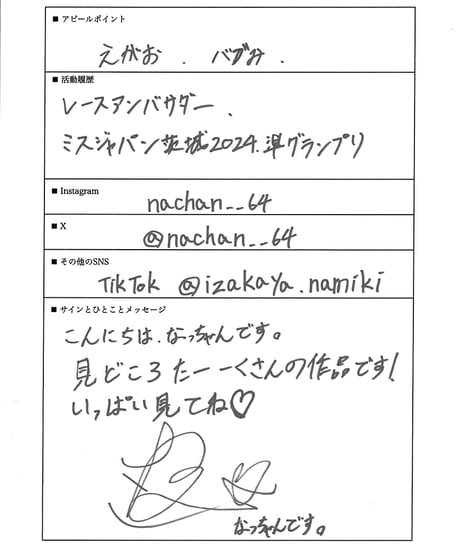 ■ アピールポイント
えがお . バブみ .
■ 活動履歴
レースアンバサダー .
ミスジャパン茨城2024.準グランプリ
■ Instagram
nachan__64
■ X
@nachan__64
■ その他のSNS
TikTok @izakaya.namiki
■ サインとひとことメッセージ
こんにちは、なっちゃんです。
見どころたーーくさんの作品です!
いっぱい見てね♡
なっちゃんです。